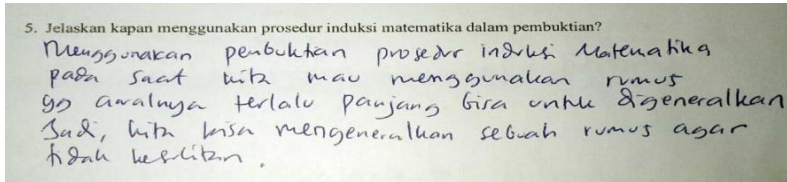 5. Jelaskan kapan menggunakan prosedur induksi matematika dalam pembuktian?
Menggunakan pembuktian prosedur induksi Matematika
pada saat kita mau menggunakan rumus
yg awalnya terlalu panjang bisa untuk digeneralkan
Jadi, kita bisa mengeneralkan sebuah rumus agar
tidak kesulitan.